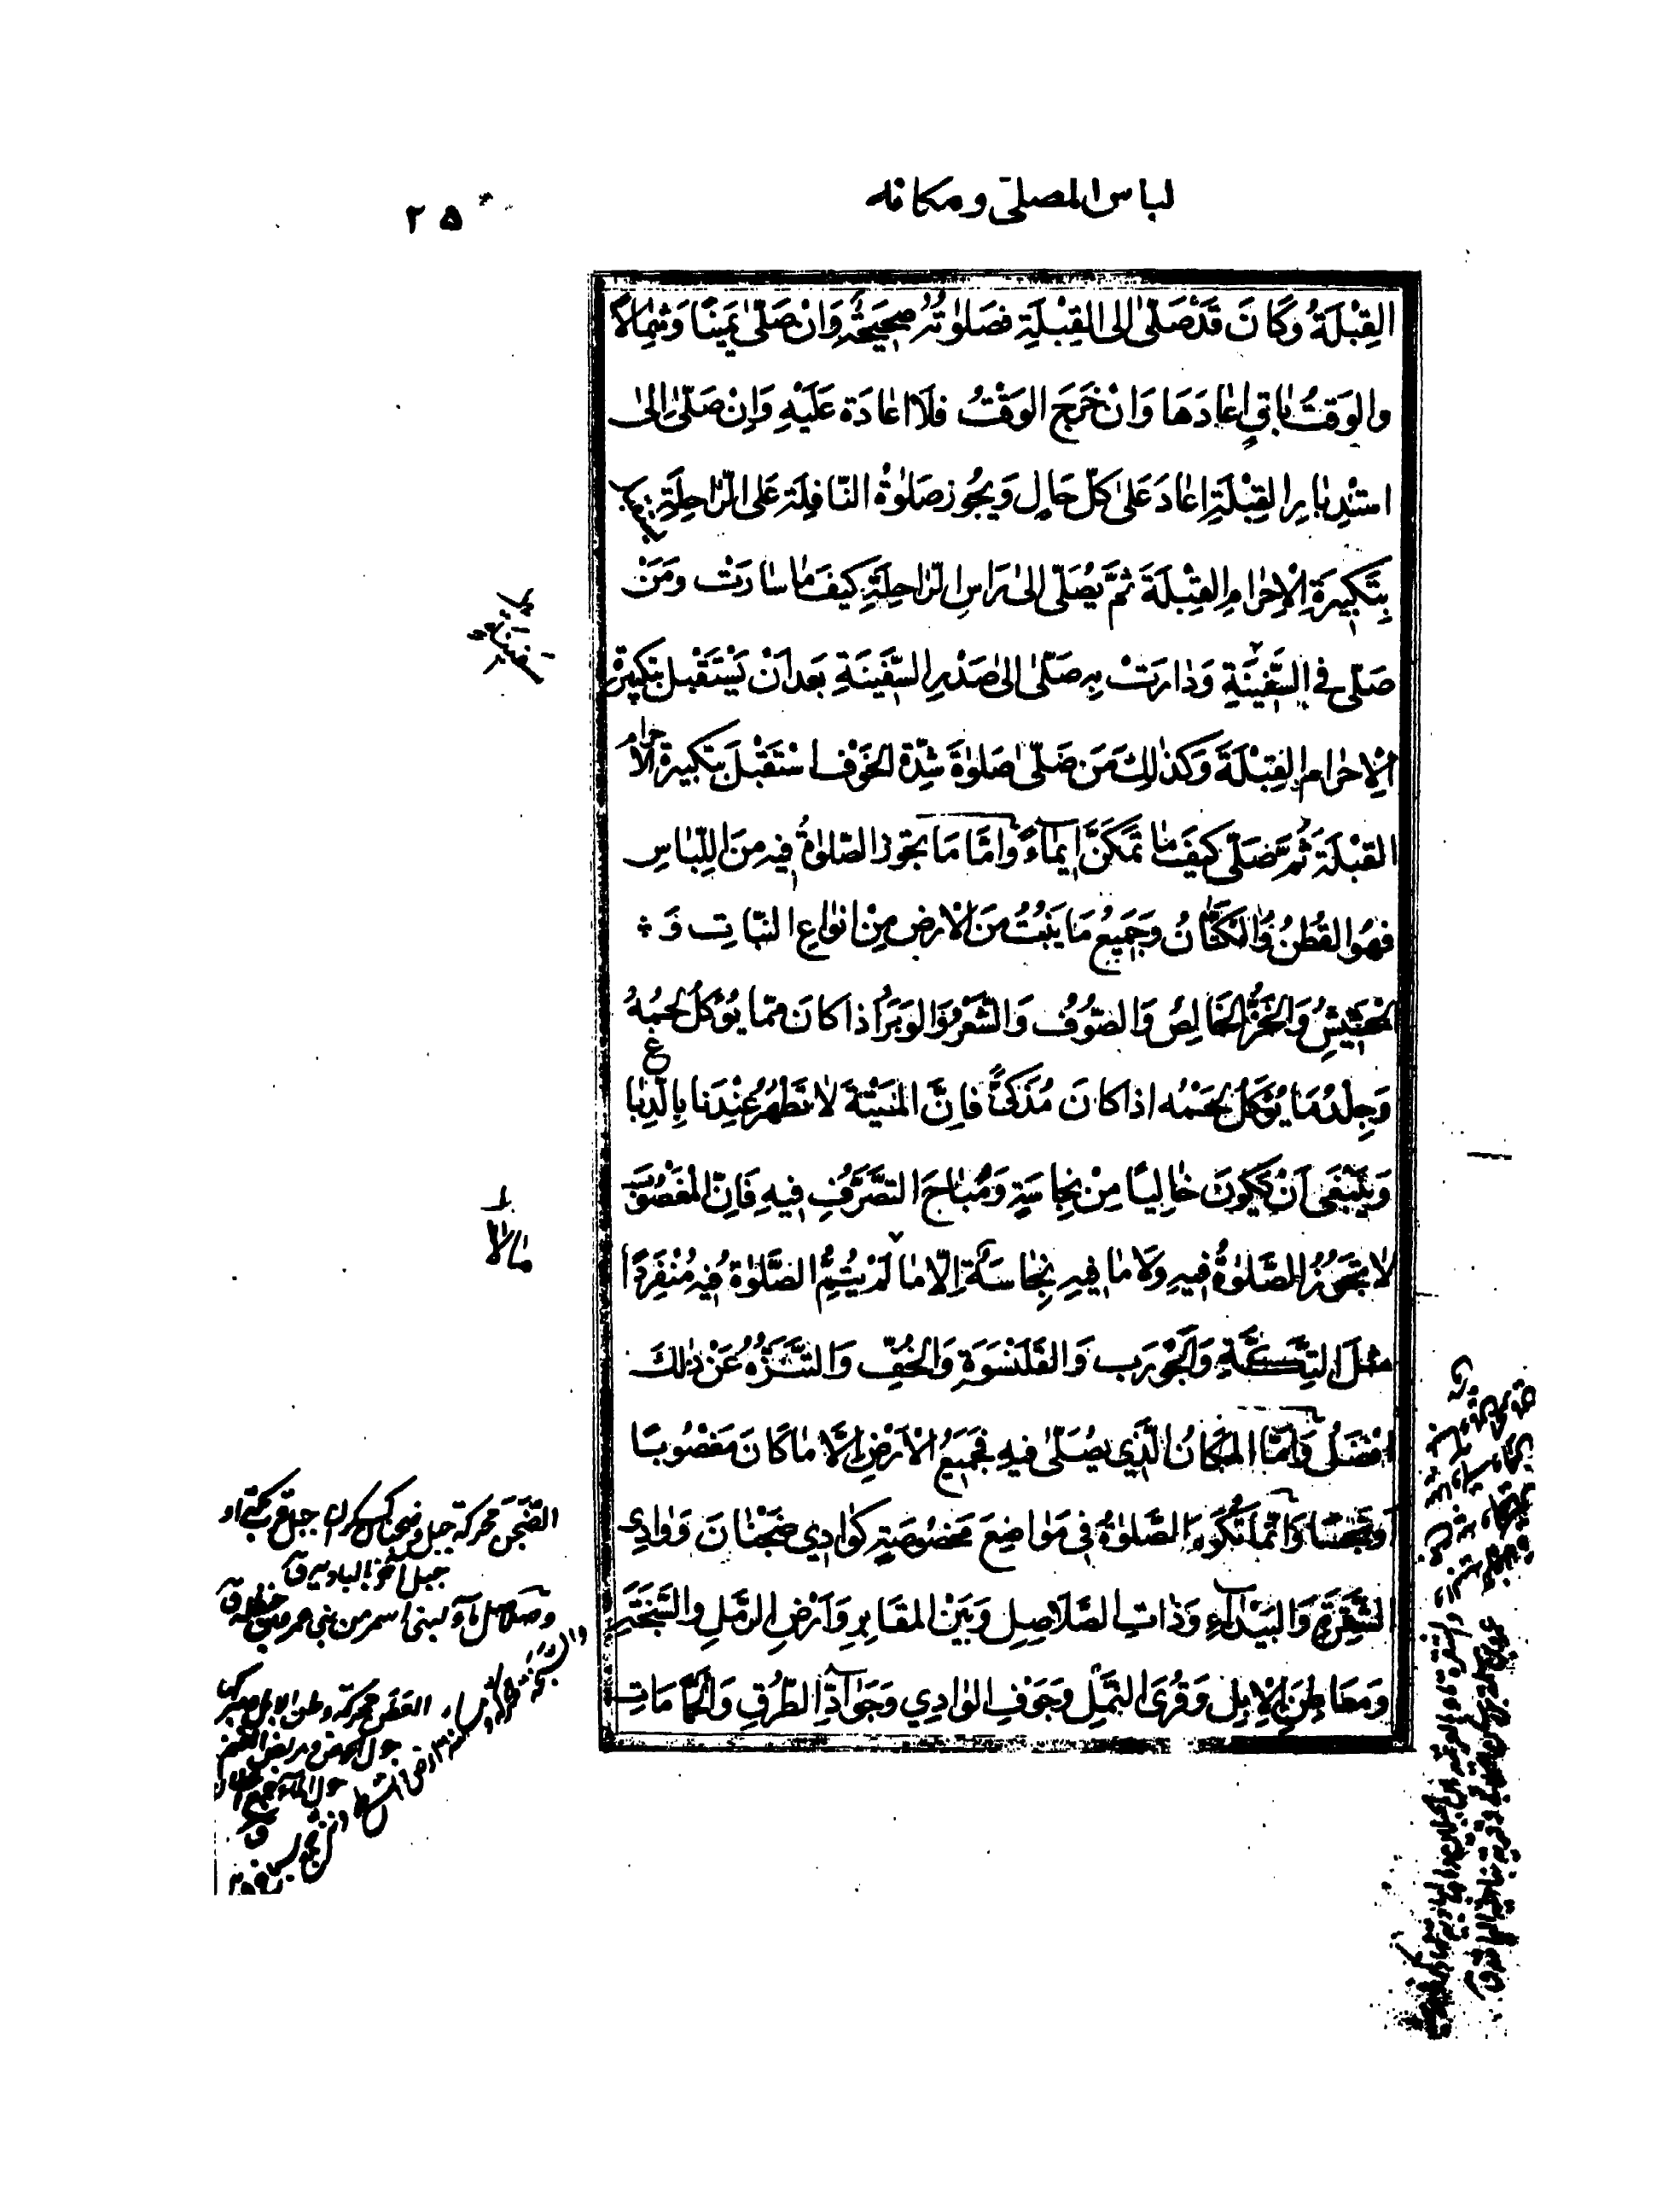 لباس المصلّى ومكانه
٢٥
القِبْلَةُ وكَانَ قَدْصَلّىٰ الى القِبْلَةِ فصَلوٰتُهُ صحِيَحَةٌ وَانْ صَلّىٰ يمَينًا وَشِمٰالاً
والوَقتُ بٰاقٍ اعٰادَهَا وَانْ خَرَجَ الوَقْتُ فلَا اعٰادَة عَلَيْهِ وَاِنْ صَلّىٰ الىٰ
استْدِبٰارِ القِبْلَةِ اعٰادَ عَلىٰ كلّ حَالٍ وَيجُوز صَلوٰةُ النّافِلَةِ عَلى الرّاحِلَةِ
بِتَكبِيرَةِ الْاِحْرٰامِ القِبْلَةَ ثمَّ يُصَلّى الىٰ رَاسِ الرّاحِلَةِ كيفَ مٰا سٰارَتْ ومَنْ
صَلّى في السَّفينَةِ وَدٰارَتْ بِهِ صَلّىٰ الىٰ صَدْرِ السَّفينَةِ بَعدَ انْ يَسْتَقْبل بتكبيرَةِ
الْاِحْرٰام القِبْلَةَ وَكذٰلِكَ مَن صَلّىٰ صَلوٰةَ شِدّة الخَوْف اسْتَقْبَلَ بتَكبيرَة الاحرام
القبْلَةَ ثُمَّ صَلّى كيَفَ مٰا تمَكَنَّ اِيمٰاءً وَامّا مَا تجوز الصّلوٰةُ فيه منَ اللِّبٰاسِ
فهُوَ القُطْنُ وَالكَتّانُ وَجَميعُ مَا يَنبُتُ منَ الارض مِنْ انوٰاعِ النّبَاتِ وَ
الحَشيشِ وَالخَزُّ الخالِصُ وَالصّوُف وَالشَّعْرُ وَالوَبَرُ اذا كانَ ممّا يُؤكَلُ لحمُهُ
وَجِلْدُ مَا يُؤكَلُ لحَمْهُ اذا كانَ مُذكىًّ فاِنَّ المَيْتَةَ لاٰ تَطْهُرُ عِنْدَنا بِالدِّبٰا
وَيَنْبَغى اَنْ يَكوُنَ خٰالِيًا مِنْ نجٰاسَةٍ وَمُبٰاحَ التصَّرُّفِ فيهِ فَاِنَّ المَغْصُوْبَ
لا تَجَوُزُ الصَّلوٰةُ فيهِ وَلا مٰا فيهِ نجٰاسَةٌ اِلّا مٰا لَمْ يُتِمَّ الصَّلوٰة فيهِ مُنْفَرِدًا
مثلَ التِّكَّةِ وَالجَوْرَب وَالقَلَنْسُوَةِ وَالخُفّ وَالتَّنَزُّهُ عَنْ ذٰلكَ
افْضَلُ وَامّا المكَانُ الَّذي يصُلّىٰ فيهِ فجَميعُ الْارْضِ اِلَّا مٰا كَانَ مَغصُوبًا
اَونَجسًا وَانّما تُكرَه الصَّلوٰةُ في مَوٰاضِعَ مَخصُوصَةٍ كوٰادِي ضَجْنٰانَ وَوٰادِي
الشَّقِرَةِ وَالبَيْدٰآءِ وَذٰاتِ الصَّلاصِلِ وَبَيْنَ المقَابِرِ وَاَرْضِ الرَّملِ والسَّبَخَةِ
وَمعَاطِنِ الْاِبِلِ وَقُرىَ النَّملِ وجَوفِ الوٰادِي وَجَوٰآدّ الطّرُقِ وَالحمّامَات
مٰالا
الضَّجَنَ محركة جبل وضجنان كسكران جبل قرب مكة و
جبل آخر بالبادية ق
وصلاصل ماۤء لبنى اسمر من بنى عمرو بن حنظلة ق
العَطَن محركة وطن الابل ومبركها
حول الحوض ومربض الغنم
حول الماء
ق